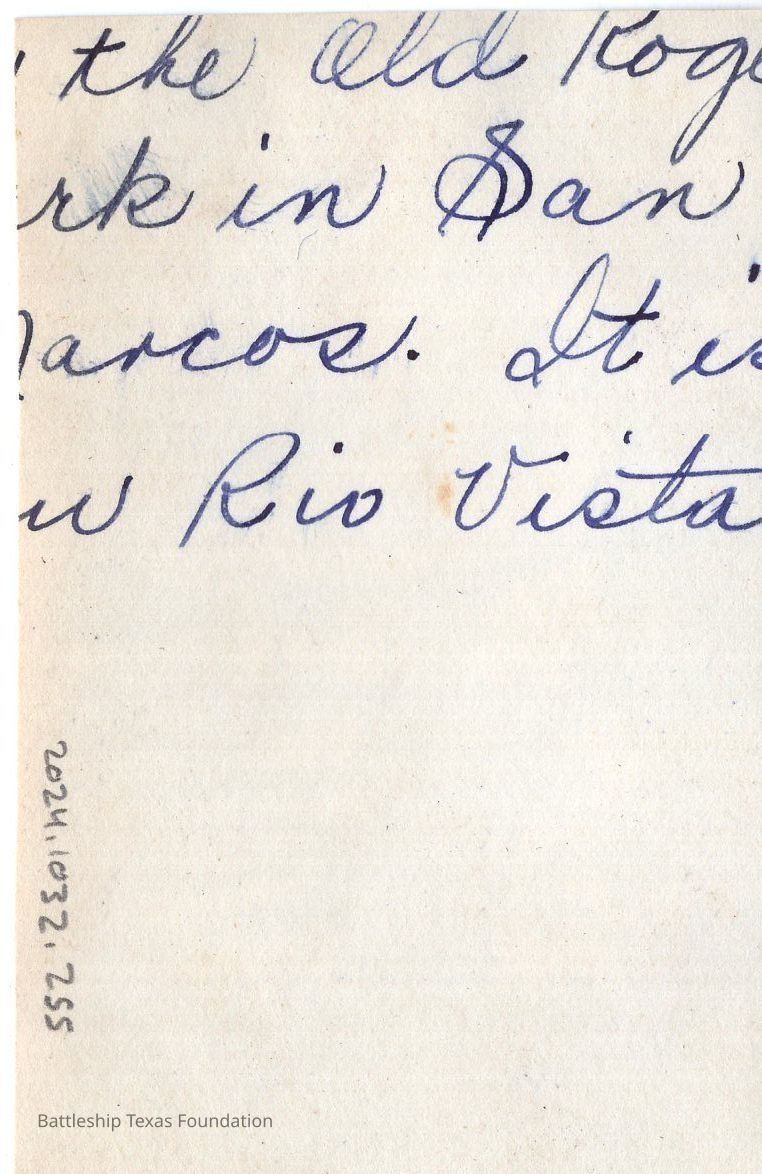 the Old Roge
rk in San
arcos. It is
w Rio Vista
2024.1032.255
Battleship Texas Foundation